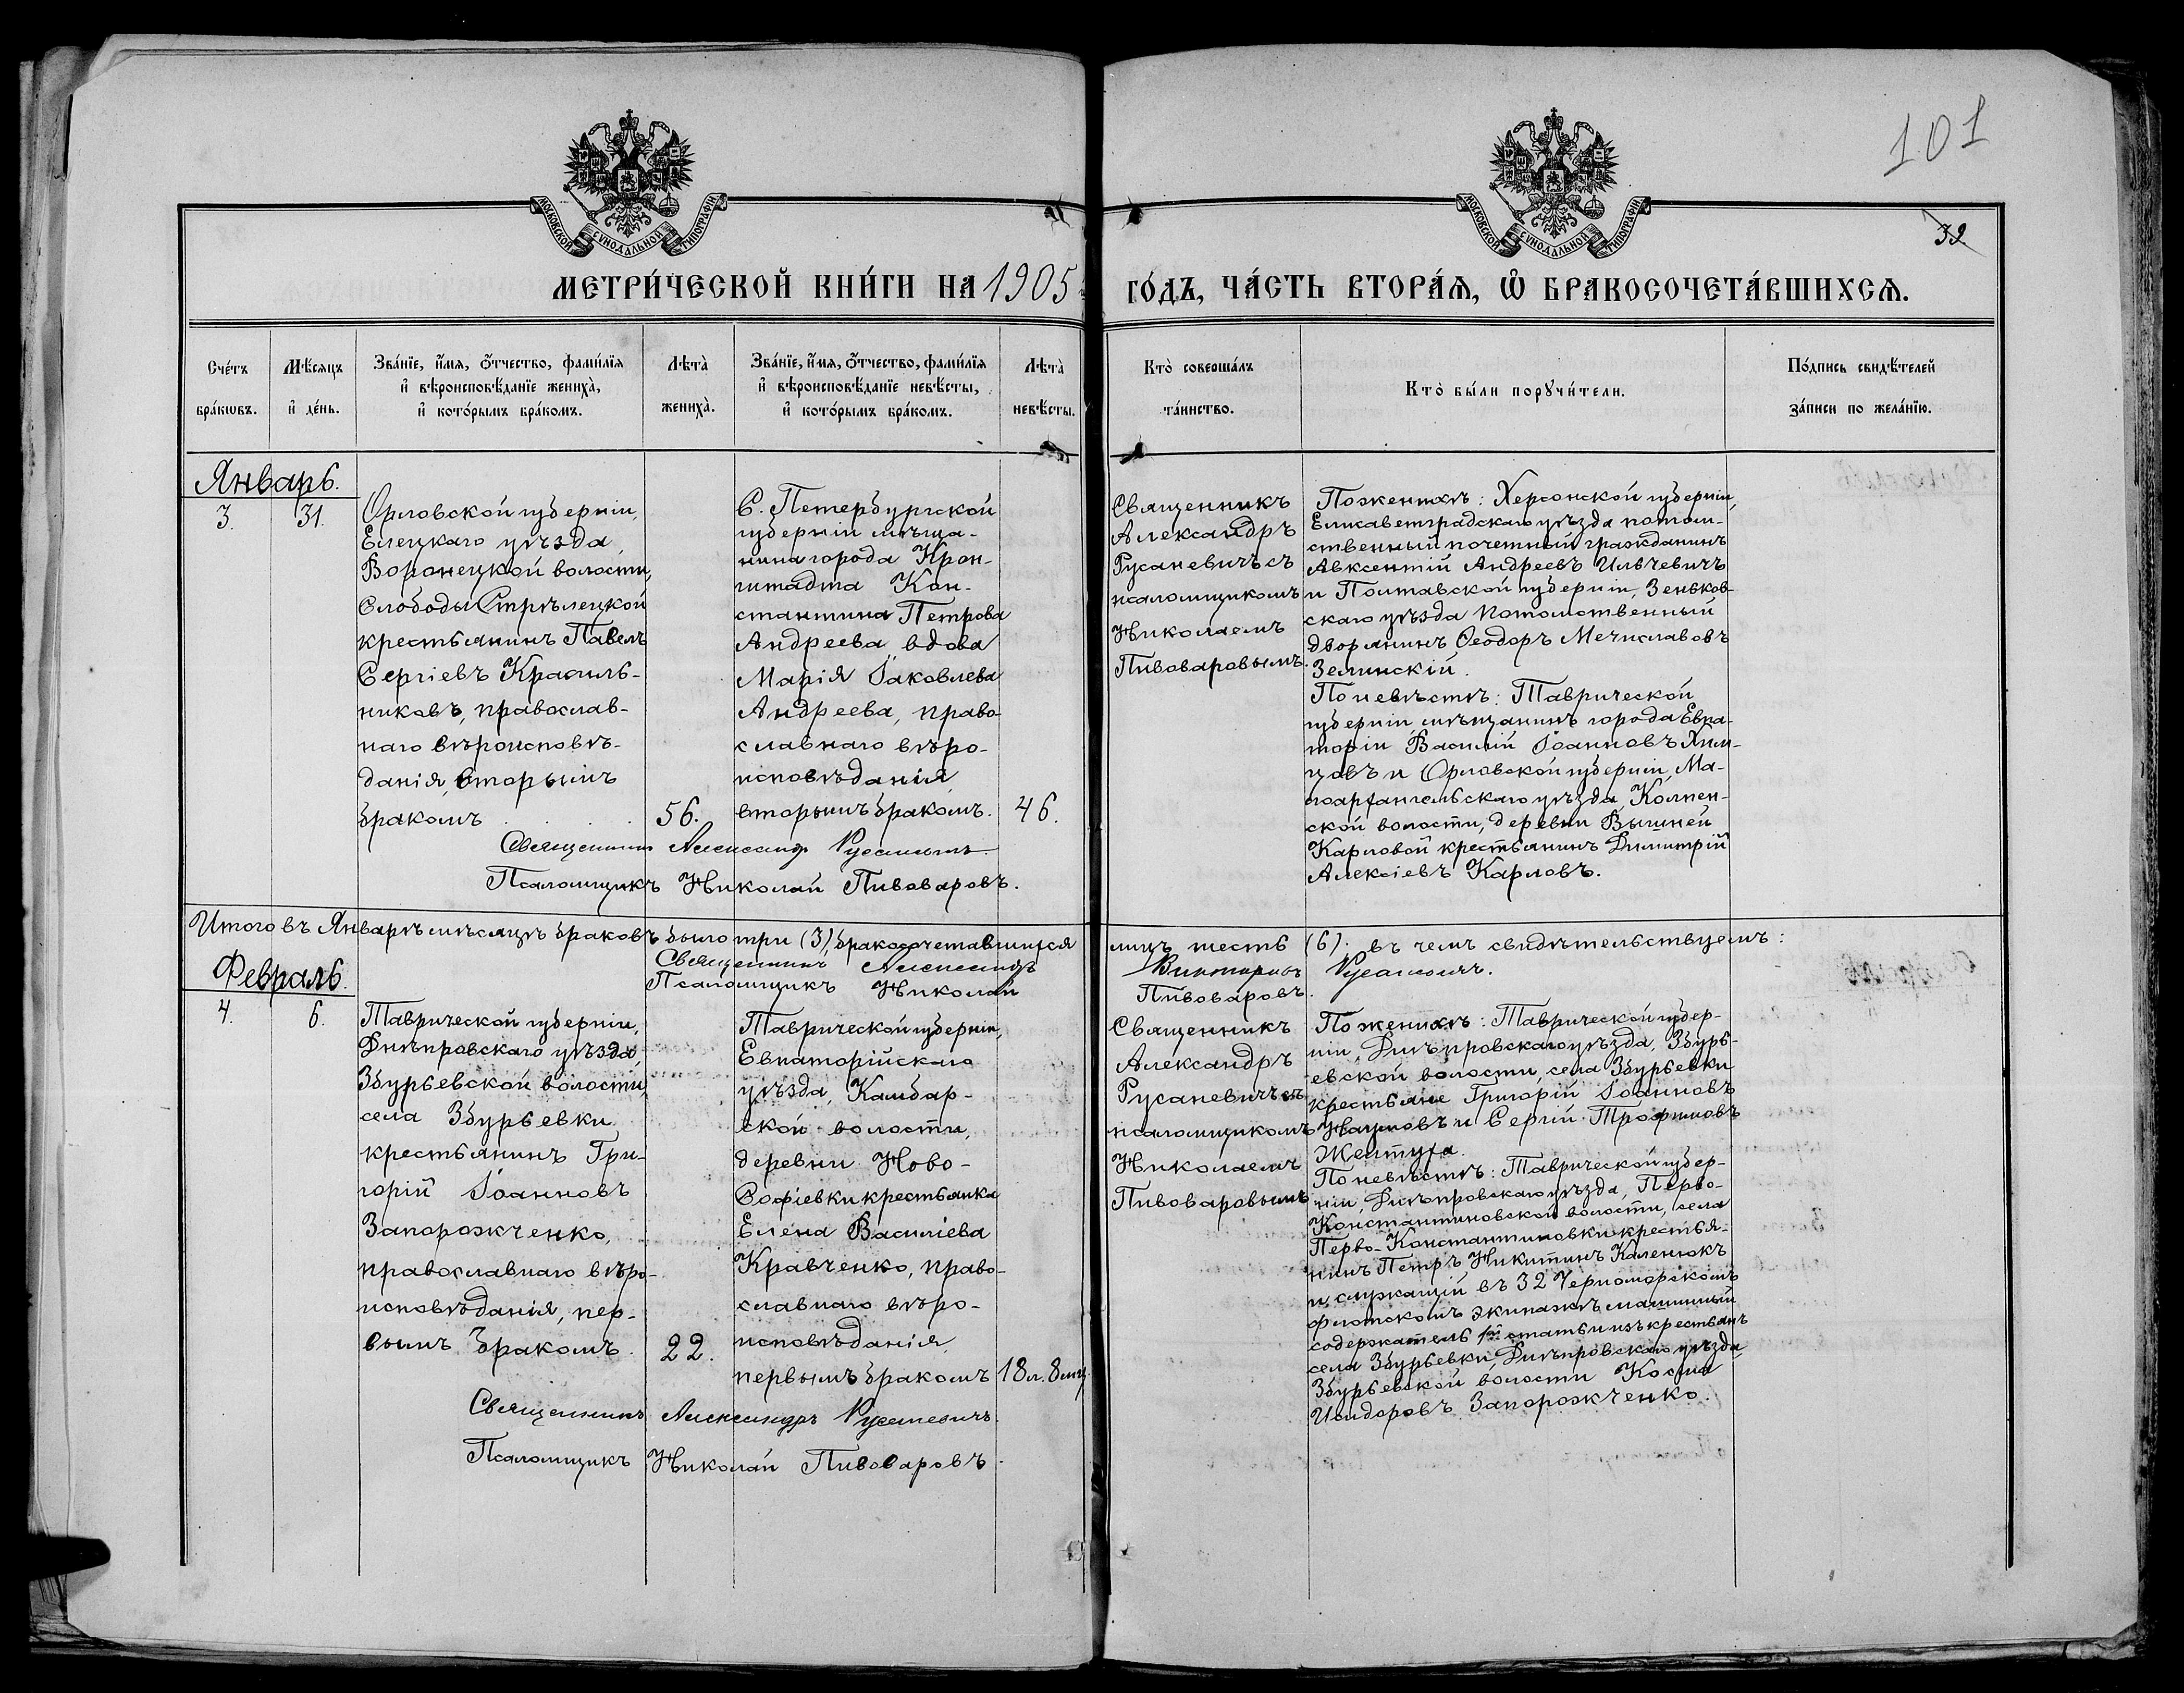 101
МОСКОВСКОЙ СѴНОДАЛЬНОЙ ТИПОГРАФІИ
МОСКОВСКОЙ СѴНОДАЛЬНОЙ ТИПОГРАФІИ
39
МЕТРИ́ЧЕСКОЙ КНИ́ГИ НА 1905 ГО́ДЪ, ЧА́СТЬ ВТОРА́Ѧ, Ѡ҆ БРАКОСОЧЕТА́ВШИХСѦ.
Сче́тъ
бра́кѡвъ.
Мѣ́сяцъ
и҆ де́нь.
Зва́нїе, и҆́мя, ѻ҆́тчество, фами́лїя
и҆ вѣроисповѣ́данїе жениха̀,
и҆ кото́рымъ бра́комъ.
Лѣта̀
жениха̀.
Зва́нїе, и҆́мя, ѻ҆́тчество, фами́лїя
и҆ вѣроисповѣ́данїе невѣ́сты,
и҆ кото́рымъ бра́комъ.
Лѣта̀
невѣ́сты.
Кто̀ соверша́лъ
та́инство.
Кто̀ бы́ли порꙋчи́тели.
По́дпись свидѣ́телей
за́писи по жела́нїю.
Январь.
3. 31.
Орловской губерніи,
Елецкаго уѣзда,
Воронецкой волости,
Слободы Стрѣлецкой
крестьянинъ Павелъ
Сергіевъ Красиль-
никовъ, православ-
наго вѣроисповѣ-
данія, вторымъ
бракомъ
56.
С. Петербургской
губерніи мѣща-
нина города Крон-
штадта Кон-
стантина Петрова
Андреева вдова
Марія Іаковлева
Андреева, право-
славнаго вѣро-
исповѣданія,
вторымъ бракомъ.
46.
Священникъ
Александръ
Русаневичъ съ
псаломщикомъ
Николаемъ
Пивоваровымъ.
По женихѣ: Херсонской губерніи,
Елисаветградскаго уѣзда потом-
ственный почетный гражданинъ
Авксентій Андреевъ Ильчевичъ
и Полтавской губерніи, Зеньков-
скаго уѣзда потомственный
дворянинъ Ѳеодоръ Мечиславовъ
Зелинскій.
По невѣстѣ: Таврической
губерніи мѣщанинъ города Евпа-
торіи Василій Іоанновъ Хим-
цовъ и Орловской губерніи, Ма-
лоархангельскаго уѣзда, Колпен-
ской волости, деревни Вышней
Карловой крестьянинъ Димитрій
Алексіевъ Карловъ.
Священникъ Александръ Русаневичъ.
Псаломщикъ Николай Пивоваровъ.
Итого въ Январѣ мѣсяцѣ браковъ было три (3), бракосочетавшихся лицъ шесть (6). въ чемъ свидѣтельствуемъ:
Священникъ Александръ Викторовъ Русаневичъ.
Псаломщикъ Николай Пивоваровъ.
Февраль.
4. 6.
Таврической губерніи,
Днѣпровскаго уѣзда,
Збурьевской волости,
села Збурьевки
крестьянинъ Гри-
горій Іоанновъ
Запорожченко,
православнаго вѣро-
исповѣданія, пер-
вымъ бракомъ.
22.
Таврической губерніи,
Евпаторійскаго
уѣзда, Камбар-
ской волости,
деревни Ново-
Софіевки крестьянка
Елена Василіева
Кравченко, право-
славнаго вѣро-
исповѣданія,
первымъ бракомъ
18 л. 8 мц.
Священникъ
Александръ
Русаневичъ съ
псаломщикомъ
Николаемъ
Пивоваровымъ
По женихѣ: Таврической губер-
ніи, Днѣпровскаго уѣзда, Збурь-
евской волости, села Збурьевки
крестьяне Григорій Іоанновъ
Наумовъ и Сергій Трофимовъ
Желтуха.
По невѣстѣ: Таврической губер-
ніи, Днѣпровскаго уѣзда, Перво-
Константиновской волости, села
Перво-Константиновки крестья-
нинъ Петръ Никитинъ Каленюкъ
и служащій въ 32 Черноморскомъ
флотскомъ экипажѣ машинный
содержатель 1й статьи изъ крестьянъ
села Збурьевки, Днѣпровскаго уѣзда
Збурьевской волости Косма
Исидоровъ Запорожченко.
Священникъ Александръ Русаневичъ.
Псаломщикъ Николай Пивоваровъ.